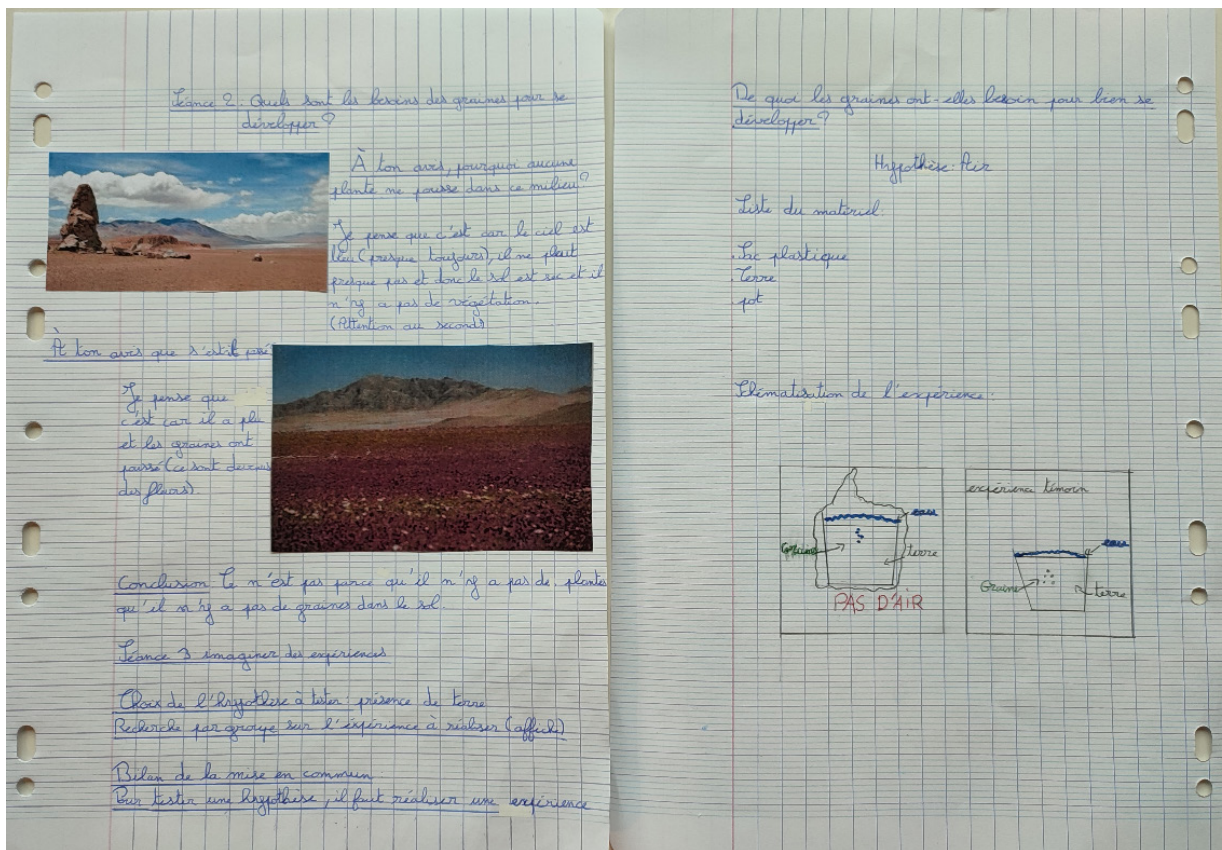 Séance 2: Quels sont les besoins des graines pour se
développer?
À ton avis, pourquoi aucune
plante ne pousse dans ce milieu?
Je pense que c'est car le ciel est
bleu (presque toujours), il ne pleut
presque pas et donc le sol est sec et il
n'y a pas de végétation.
(Attention au second)
À ton avis que s'est-il passé
Je pense que
c'est car il a plu
et les graines ont
poussé (ce sont devenus
des fleurs).
Conclusion Ce n'est pas parce qu'il n'y a pas de plantes
qu'il n'y a pas de graines dans le sol.
Séance 3 imaginer des expériences
Choix de l'hypothèse à tester: présence de terre
Recherche par groupe sur l'expérience à réaliser (affiche)
Bilan de la mise en commun:
Pour tester une hypothèse, il faut réaliser une expérience
De quoi les graines ont-elles besoin pour bien se
développer?
Hypothèse: Air
Liste du matériel:
. Sac plastique
. Terre
. pot
Schématisation de l'expérience:
eau
Graine
terre
PAS D'AIR
expérience témoin
eau
Graine
terre